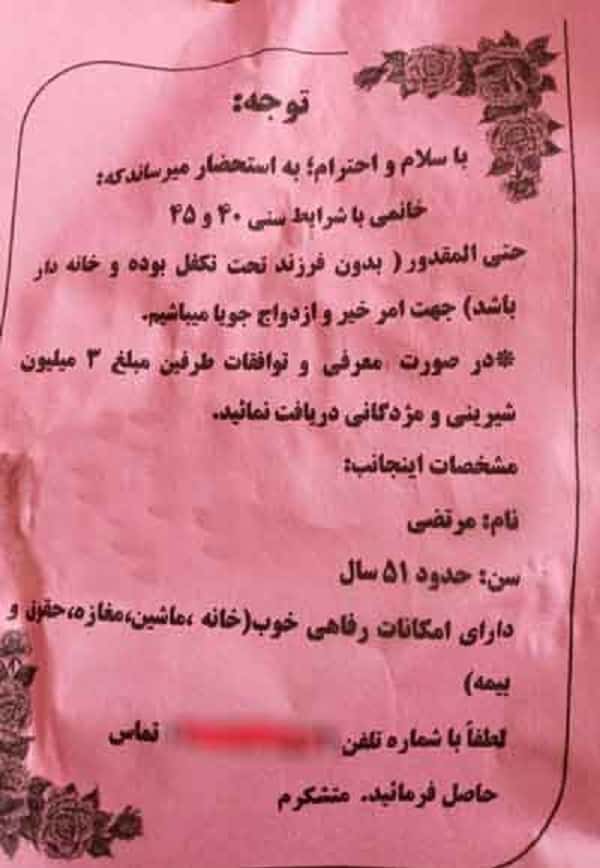 توجه:
با سلام و احترام؛ به استحضار میرساند که:
خانمی با شرایط سنی ۴۰ و ۴۵
حتی المقدور ( بدون فرزند تحت تکفل بوده و خانه دار
باشد) جهت امر خیر و ازدواج جویا میباشیم.
*در صورت معرفی و توافقات طرفین مبلغ ۳ میلیون
شیرینی و مژدگانی دریافت نمائید.
مشخصات اینجانب:
نام: مرتضی
سن: حدود ۵۱ سال
دارای امکانات رفاهی خوب(خانه ،ماشین،مغازه،حقوق و
بیمه)
لطفاً با شماره تلفن تماس
حاصل فرمائید. متشکرم